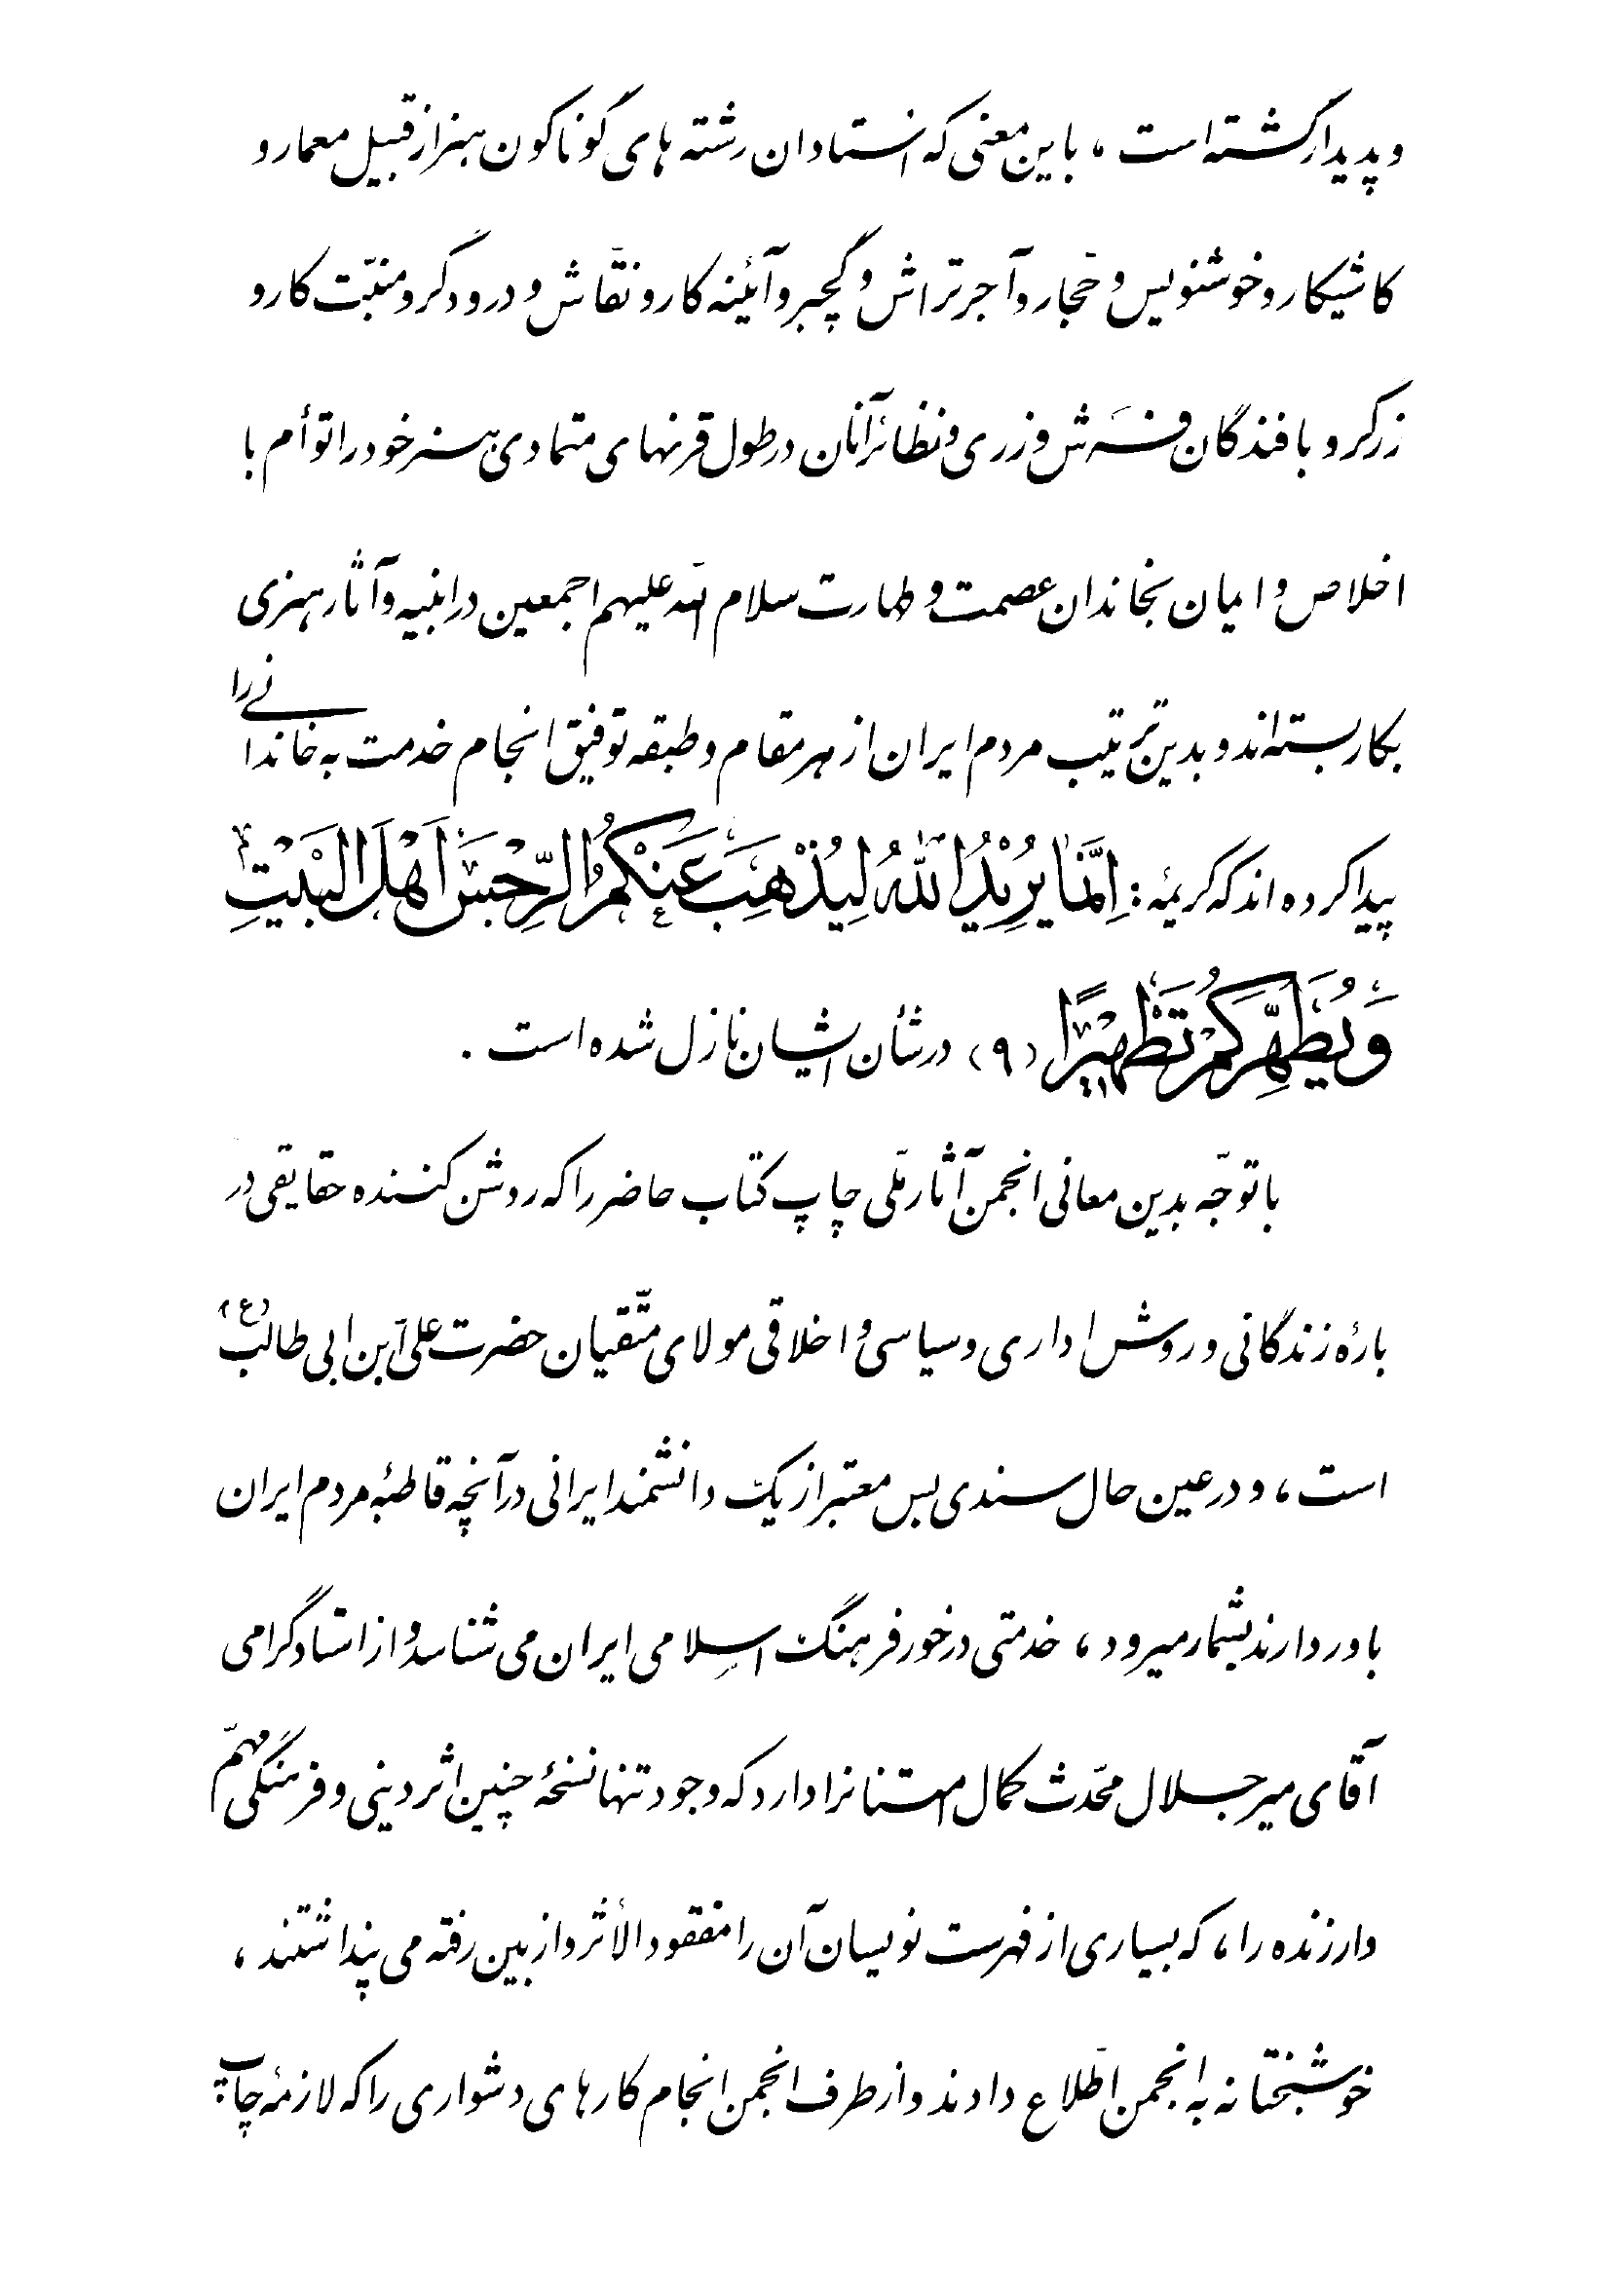 و پدیدار گشته است ، باین معنی که استادان رشته های گوناگون هنر از قبیل معمار و
کاشیکار و خوشنویس و حجّار و آجر تراش و گچبر و آئینه کار و نقّاش و درودگر و منبّت کار و
زرگر و بافندگان فَرش و زری و نظائر آنان در طول قرنهای متمادی هنر خود را توأم با
اخلاص و ایمان بخاندان عصمت و طهارت سلام الله علیهم اجمعین در ابنیه و آثار هنری
بکار بسته اند و بدین ترتیب مردم ایران از هر مقام و طبقه توفیق انجام خدمت به خاندانی را
پیدا کرده اند که کریمهٔ : اِنَّمٰا یُرِیْدُ اللّٰهُ لِیُذْهِبَ عَنْکُمُ الرِّجْسَ اَهْلَ الْبَیْتِ
وَ یُطَهِّرَکُمْ تَطْهِیْرًا (۹) در شأن ایشان نازل شده است .
با توجّه بدین معانی انجمن آثار ملّی چاپ کتاب حاضر را که روشن کننده حقایقی در
بارهٔ زندگانی و روش اداری و سیاسی و اخلاقی مولای متّقیان حضرت علی ابن ابی طالب (ع)
است ، و در عین حال سندی بس معتبر از یک دانشمند ایرانی در آنچه قاطبهٔ مردم ایران
باور دارند بشمار میرود ، خدمتی در خور فرهنگ اسلامی ایران می شناسد و از استاد گرامی
آقای میر جلال محدّث کمال امتنان را دارد که وجود تنها نسخهٔ چنین اثر دینی و فرهنگی مهمّ
و ارزنده را ، که بسیاری از فهرست نویسان آن را مفقود الأثر و از بین رفته می پنداشتند ،
خوشبختانه به انجمن اطّلاع دادند و از طرف انجمن انجام کارهای دشواری را که لازمهٔ چاپ